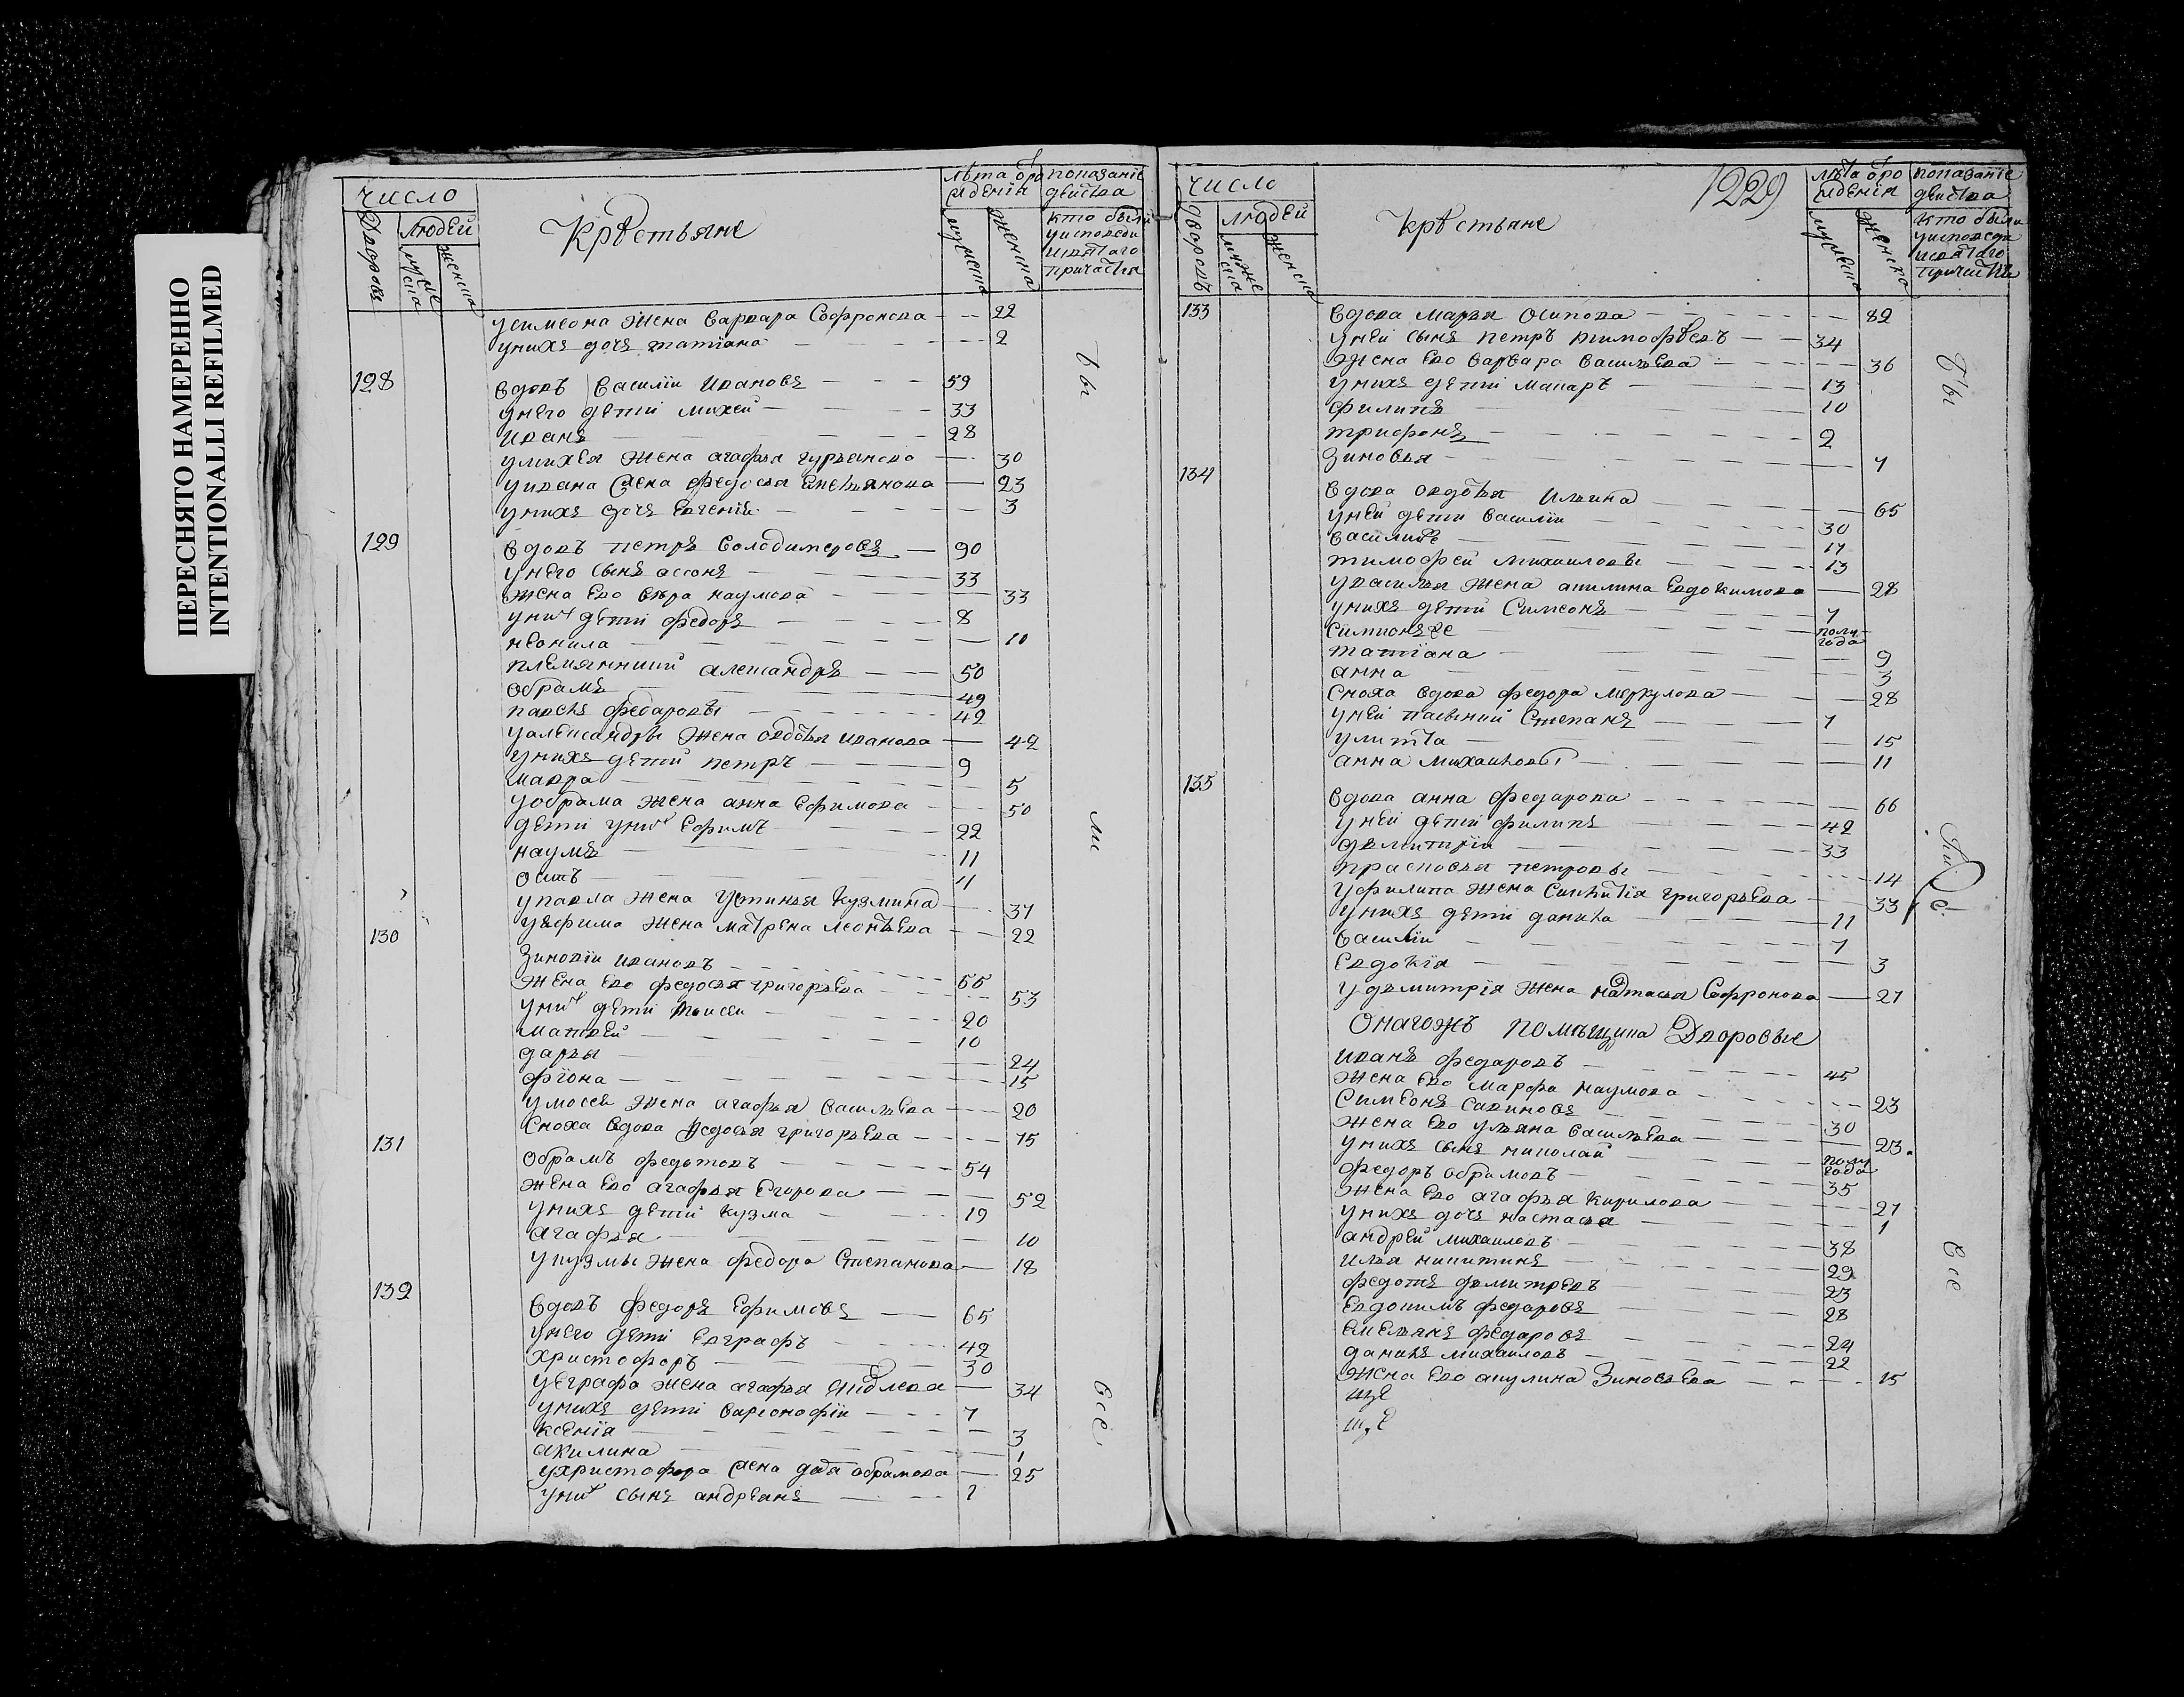 ПЕРЕСНЯТО НАМЕРЕННО
INTENTIONALLI REFILMED
число
Дворовъ
людей
мужеска
женска
Крѣстьяне
лѣта орождения
мужеска
женска
показание действа
кто были
у исповеди
и святаго
причастия
у симеона жена варвара Софронова 22
у нихъ дочь татïана 2
128 вдовъ василïи ивановъ 59
у него дети михей 33
иванъ 28
у михея жена агафья гурьянова 30
у ивана жена федосья Емельянова 23
у нихъ дочь Евгения 3
129 вдовъ петръ володимеровъ 90
у него сынъ асонъ 33
жена Ево вѣра наумова 33
у них дети федоръ 8
неонила 10
племянники александръ 50
обрамъ 49
павелъ федаровы 42
у александры жена овдотья иванова 42
у нихъ дети петръ 9
мавра 5
у обрама жена анна Ефимова 50
дети у них Ефимъ 22
наумъ 11
осипъ 11
у павла жена устинья кузмина 37
у ефима жена матрена леонтьева 22
130 зиновïи ивановъ 55
жена Ево федосья григорьева 53
у них дети моисеи 20
матвей 10
дарья 24
фïона 15
у мосея жена агафья васильева 20
сноха вдова федосья григорьева 75
131 обрамъ федотовъ 54
жена Ево агафья Егорова 52
у нихъ дети кузма 19
агафья 10
у кузмы жена федора Степанова 18
132 вдовъ федоръ Ефимовъ 65
у него дети Евграфъ 42
христофоръ 30
у Еграфа жена агафья яковлева 34
у нихъ дети варсонофïи 7
ксения 3
акилина 1
у христофора жена обрамова 25
у них сынъ андреянъ 1
бы
ли
все
1229
число
Дворовъ
людей
мужеска
женска
крѣстьяне
лѣта орождения
мужеска
женска
показание действа
кто были
у исповеди
и святаго
причастия
133 вдова марья осипова 82
у ней сынъ петръ тимофѣевъ 34
жена Ево варвара васильева 36
у нихъ дети макаръ 13
филипъ 10
трифонъ 2
зиновья 7
134 вдова овдотья ильина 65
у ней дети василïи 30
василий 17
тимофеи михаиловы 13
у василья жена акилина Евдокимова 28
у нихъ дети Симеонъ 7
Симионъ же полугода
татïана 9
анна 3
сноха вдова федора меркулова 28
у ней пасынки Степанъ 7
улитта 15
анна михаиловы 11
135 вдова анна федарова 66
у ней дети филипъ 42
дмитрïи 33
прасковья петровы 14
у филипа жена григорьева 33
у нихъ дети данила 11
василïи 7
Евдокïя 3
у дмитрïя жена настасья Софронова 27
Онагожъ помѣщика Дворовые
иванъ федаровъ 45
жена Ево марфа наумова 23
Симеонъ савиновъ 30
жена Ево ульяна васильева 23
у нихъ сынъ николай полугода
федоръ обрамовъ 35
жена Ево агафья кирилова 27
у нихъ дочь настасья 1
андрей михаиловъ 38
илья никитинъ 29
федотъ дмитревъ 23
Евдокимъ федаровъ 28
Емельянъ федаровъ 24
данилъ михаиловъ 22
жена Ево акулина Зиновьева 15
бы
все